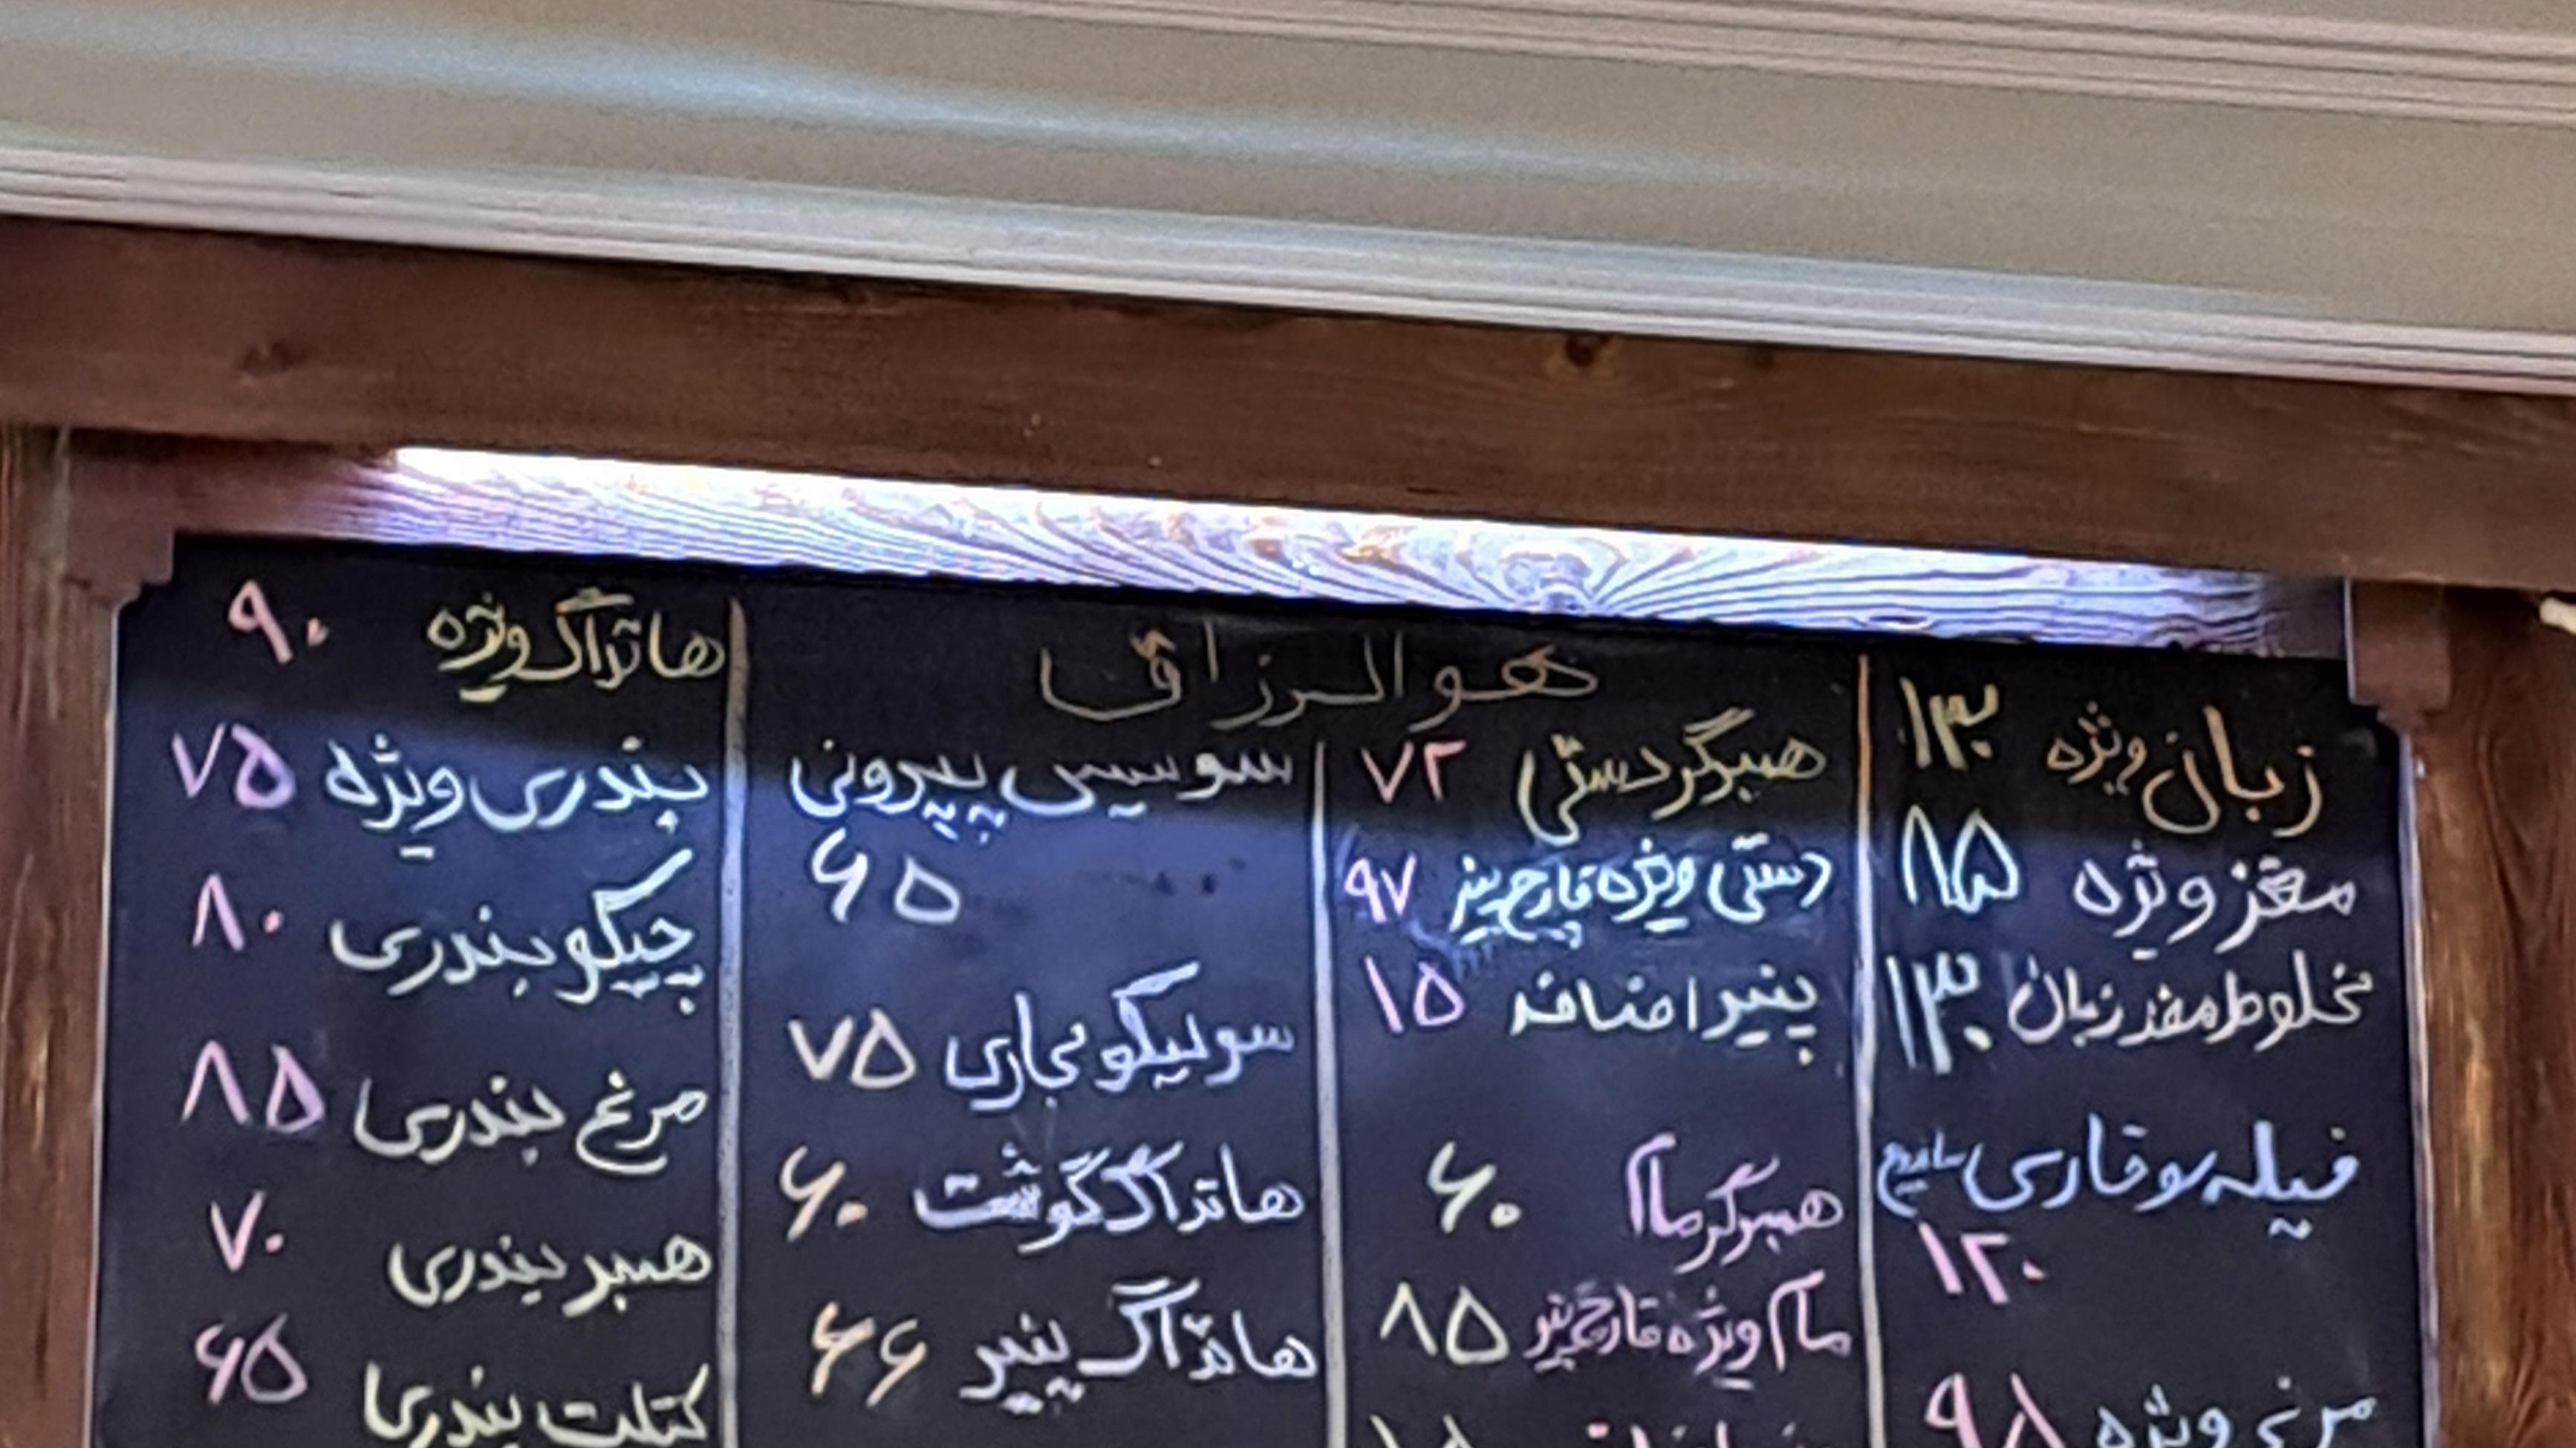 هوالرزاق
زبان ویژه ۱۳۰
مغز ویژه ۸۵
مخلوط مغز زبان ۱۳۰
فیله سوخاری
۱۲۰
مرغ ویژه ۹۸
همبرگر دستی ۷۲
دستی ویژه قارچ پنیر ۹۷
پنیر اضافه ۱۵
همبرگر مام ۶۰
مام ویژه قارچ پنیر ۸۵
سوسیس پپرونی
۶۵
سولیکو مجاری ۷۵
هاتداگ گوشت ۶۰
هاتداگ پنیر ۶۶
هاتداگ ویژه ۹۰
بندری ویژه ۷۵
چیکو بندری ۸۰
مرغ بندری ۸۵
همبر بندری ۷۰
کتلت بندری ۶۵